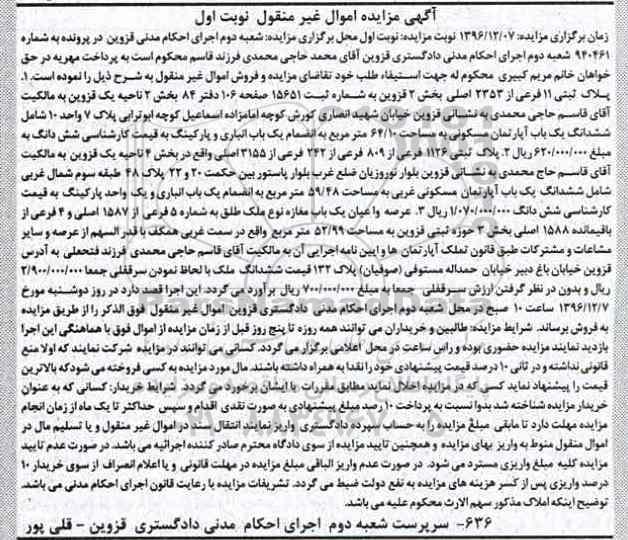 آگهی مزایده اموال غیر منقول نوبت اول
زمان برگزاری مزایده: ۱۳۹۶/۱۲/۰۷ نوبت مزایده: نوبت اول محل برگزاری مزایده: شعبه دوم اجرای احکام مدنی قزوین در پرونده به شماره
۹۴۰۴۶۱ شعبه دوم اجرای احکام مدنی دادگستری قزوین آقای محمد حاجی محمدی فرزند قاسم محکوم است به پرداخت مهریه در حق
خواهان خانم مریم کبیری محکوم له جهت استیفاء طلب خود تقاضای مزایده و فروش اموال غیر منقول به شرح ذیل را نموده است. ۱.
پلاک ثبتی ۱۱ فرعی از ۲۳۵۳ اصلی بخش ۲ قزوین به شماره ثبت ۱۵۶۵۱ صفحه ۱۰۶ دفتر ۸۴ بخش ۲ ناحیه یک قزوین به مالکیت
آقای قاسم حاجی محمدی به نشانی قزوین خیابان شهید انصاری کورش کوچه امامزاده اسماعیل کوچه ابوترابی پلاک ۷ واحد ۱۰ شامل
ششدانگ یک باب آپارتمان مسکونی به مساحت ۶۴/۱۰ متر مربع به انضمام یک باب انباری و پارکینگ به قیمت کارشناسی شش دانگ به
مبلغ ۶۲۰/۰۰۰/۰۰۰ ریال ۲. پلاک ثبتی ۱۱۲۶ فرعی از ۸۰۹ فرعی از ۲۴۲ فرعی از ۳۱۵۵ اصلی واقع در بخش ۴ ناحیه یک قزوین به مالکیت
آقای قاسم حاج محمدی به نشانی قزوین بلوار نوروزیان ضلع غرب بلوار پاستور بین حکمت ۲۰ و ۲۲ پلاک ۴۸ طبقه سوم شمال غربی
شامل ششدانگ یک باب آپارتمان مسکونی غربی به مساحت ۵۹/۴۸ متر مربع به انضمام یک باب انباری و یک واحد پارکینگ به قیمت
کارشناسی شش دانگ ۱/۰۷۰/۰۰۰/۰۰۰ ریال ۳. عرصه و اعیان یک باب مغازه نوع ملک طلق به شماره ۵ فرعی از ۱۵۸۷ اصلی و ۴ فرعی از
باقیمانده ۱۵۸۸ اصلی بخش ۳ حوزه ثبتی قزوین به مساحت ۵۲/۹۹ متر مربع واقع در سمت غربی همکف با قدر السهم از عرصه و سایر
مشاعات و مشترکات طبق قانون تملک آپارتمان ها و ایین نامه اجرایی آن به مالکیت آقای قاسم حاجی محمدی فرزند فتحعلی به آدرس
قزوین خیابان باغ دبیر خیابان حمداله مستوفی (صوفیان) پلاک ۱۳۲ قیمت ششدانگ ملک با لحاظ نمودن سرقفلی جمعا ۲/۹۰۰/۰۰۰/۰۰۰
ریال و بدون در نظر گرفتن ارزش سرقفلی جمعا به مبلغ ۷۰۰/۰۰۰/۰۰۰ ریال برآورد می گردد. این اجرا قصد دارد در روز دوشنبه مورخ
۱۳۹۶/۱۲/۷ ساعت ۱۰ صبح در محل شعبه دوم اجرای احکام مدنی دادگستری قزوین اموال غیر منقول فوق الذکر را از طریق مزایده
به فروش برساند. شرایط مزایده: طالبین و خریداران می توانند همه روزه تا پنج روز قبل از زمان مزایده از اموال فوق با هماهنگی این اجرا
بازدید نمایند مزایده حضوری بوده و راس ساعت در محل اعلامی برگزار می گردد. کسانی می توانند در مزایده شرکت نمایند که اولا منع
قانونی نداشته و در ثانی ۱۰ درصد قیمت پیشنهادی خود را نقدا به همراه داشته باشند. مال مورد مزایده به کسی فروخته می شود که بالاترین
قیمت را پیشنهاد نماید کسی که در مزایده اخلال نماید مطابق مقررات با ایشان برخورد می گردد. شرایط خریدار: کسانی که به عنوان
خریدار مزایده شناخته شد بدوا نسبت به پرداخت ۱۰ درصد مبلغ پیشنهادی به صورت نقدی اقدام و سپس حداکثر تا یک ماه از زمان انجام
مزایده مهلت دارد تا مابقی مبلغ مزایده را به حساب سپرده دادگستری واریز نمایند انتقال سند در اموال غیر منقول و یا تسلیم مال در
اموال منقول منوط به واریز بهای مزایده و همچنین تایید مزایده از سوی دادگاه محترم صادر کننده اجرائیه می باشد. در صورت عدم تایید
مزایده کلیه مبلغ واریزی مسترد می شود. در صورت عدم واریز الباقی مبلغ مزایده در مهلت قانونی و یا اعلام انصراف از سوی خریدار ۱۰
درصد واریزی پس از کسر هزینه های مزایده به نفع دولت ضبط می گردد. تشریفات مزایده با رعایت قانون اجرای احکام مدنی می باشد.
توضیح اینکه املاک مذکور سهم الارث محکوم علیه می باشد.
۶۳۶- سرپرست شعبه دوم اجرای احکام مدنی دادگستری قزوین - قلی پور
ParsNamadData